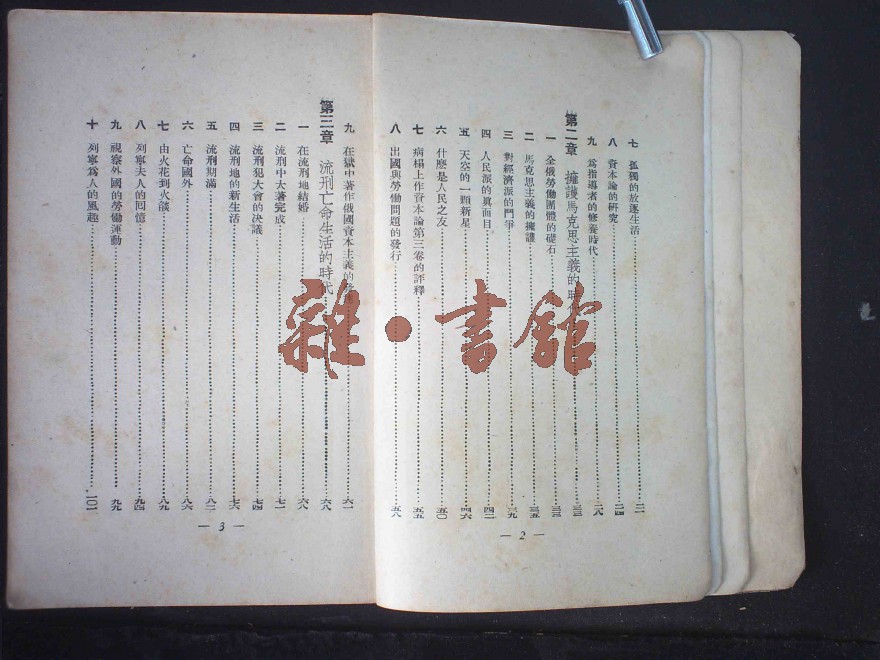 七 孤獨的放逐生活 二一
八 資本論的硏究 二四
九 爲指導者的修養時代 二八
第二章 擁護馬克思主義的時 三三
一 全俄勞働團體的礎石 三三
二 馬克思主義的擁護 三五
三 對經濟派的鬥爭 三九
四 人民派的眞面目 四二
五 天空的一顆新星 四六
六 什麽是人民之友 五〇
七 病榻上作資本論第三卷的評釋 五五
八 出國與勞働問題的發行 五八
— 2 —
九 在獄中著作俄國資本主義的發 六一
第三章 流刑亡命生活的時代 六八
一 在流刑地結婚 六八
二 流刑中大著完成 七一
三 流刑犯大會的決議 七四
四 流刑地的新生活 七六
五 流刑期滿 八三
六 亡命國外 八六
七 由火花到火燄 八九
八 列寧夫人的囘憶 九四
九 視察外國的勞働運動 九九
十 列寧爲人的風趣 一〇一
— 3 —
雜·書館